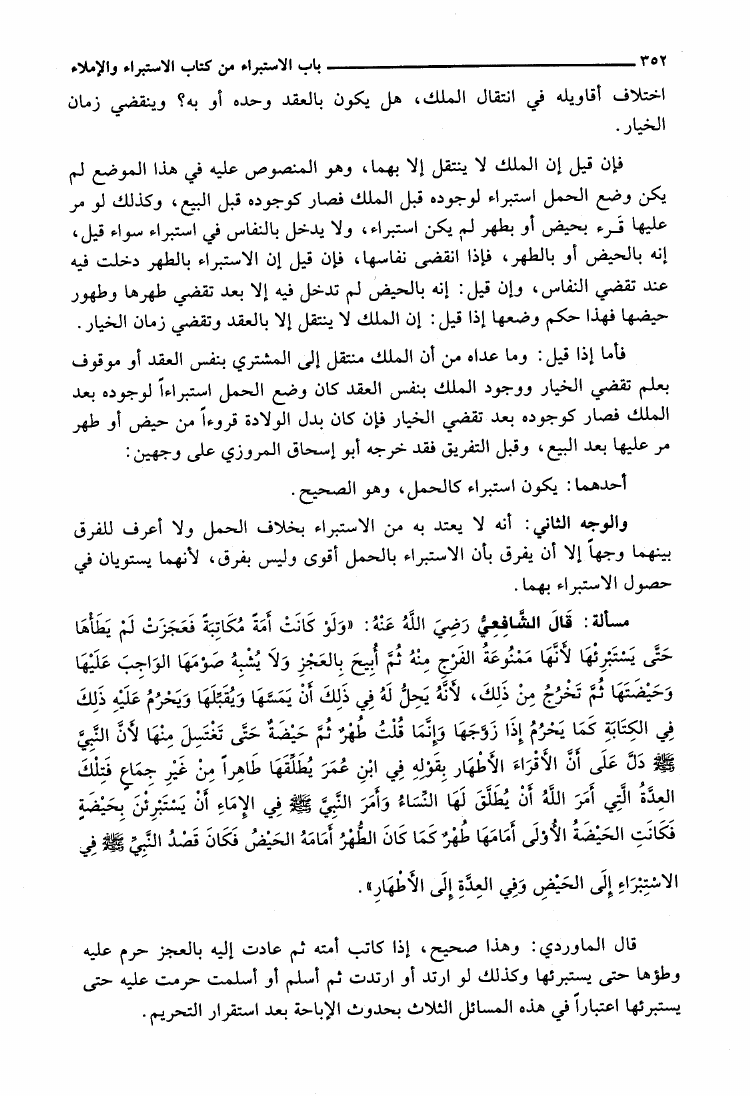 ٣٥٢ ــــــــــــــــــــ باب الاستبراء من كتاب الاستبراء والإملاء
اختلاف أقاويله في انتقال الملك، هل يكون بالعقد وحده أو به؟ وينقضي زمان
الخيار.
فإن قيل إن الملك لا ينتقل إلا بهما، وهو المنصوص عليه في هذا الموضع لم
يكن وضع الحمل استبراء لوجوده قبل الملك فصار كوجوده قبل البيع، وكذلك لو مر
عليها قَرء بحيض أو بطهر لم يكن استبراء، ولا يدخل بالنفاس في استبراء سواء قيل،
إنه بالحيض أو بالطهر، فإذا انقضى نفاسها، فإن قيل إن الاستبراء بالطهر دخلت فيه
عند تقضي النفاس، وإن قيل: إنه بالحيض لم تدخل فيه إلا بعد تقضي طهرها وطهور
حيضها فهذا حكم وضعها إذا قيل: إن الملك لا ينتقل إلا بالعقد وتقضي زمان الخيار.
فأما إذا قيل: وما عداه من أن الملك منتقل إلى المشتري بنفس العقد أو موقوف
بعلم تقضي الخيار ووجود الملك بنفس العقد كان وضع الحمل استبراءاً لوجوده بعد
الملك فصار كوجوده بعد تقضي الخيار فإن كان بدل الولادة قروءاً من حيض أو طهر
مر عليها بعد البيع، وقبل التفريق فقد خرجه أبو إسحاق المروزي على وجهين:
أحدهما: يكون استبراء كالحمل، وهو الصحيح.
والوجه الثاني: أنه لا يعتد به من الاستبراء بخلاف الحمل ولا أعرف للفرق
بينهما وجهاً إلا أن يفرق بأن الاستبراء بالحمل أقوى وليس بفرق، لأنهما يستويان في
حصول الاستبراء بهما.
مسألة: قَالَ الشَّافِعِيُّ رَضِيَ اللَّهُ عَنْهُ: «وَلَوْ كَانَتْ أَمَةً مُكَاتِبَةً فَعَجَزَتْ لَمْ يَطَأْهَا
حَتَّى يَسْتَبْرِئَهَا لأَنَّهَا مَمْنُوعَةُ الفَرْجِ مِنْهُ ثُمَّ أُبِيحَ بِالعَجْزِ وَلاَ يُشْبِهُ صَوْمَهَا الوَاجِبَ عَلَيْهَا
وَحَيْضَتَهَا ثُمَّ تَخْرُجُ مِنْ ذَلِكَ، لأَنَّهُ يَحِلُّ لَهُ فِي ذَلِكَ أَنْ يَمَسَّهَا وَيُقَبِّلَهَا وَيَحْرُمُ عَلَيْهِ ذَلِكَ
فِي الكِتَابَةِ كَمَا يَحْرُمُ إِذَا زَوَّجَهَا وَإِنَّمَا قُلْتُ طُهْرٌ ثُمَّ حَيْضَةٌ حَتَّى تَغْتَسِلَ مِنْهَا لأَنَّ النَّبِيَّ
ﷺ دَلَّ عَلَى أَنَّ الأَقْرَاءَ الأَطْهَار بِقَوْلِهِ فِي ابْنِ عُمَرَ يُطَلِّقَهَا طَاهِراً مِنْ غَيْرِ جِمَاعٍ فَتِلْكَ
العِدَّةُ الَّتِي أَمَرَ اللَّهُ أَنْ يُطَلَّقَ لَهَا النِّسَاءُ وَأَمَرَ النَّبِيَّ ﷺ فِي الإِمَاءِ أَنْ يَسْتَبْرِئْنَ بِحَيْضَةٍ
فَكَانَتِ الحَيْضَةُ الأُوْلَى أَمَامَهَا طُهْرٌ كَمَا كَانَ الطُّهْرُ أَمَامَهُ الحَيْضُ فَكَانَ قَصْدُ النَّبِيِّ ﷺ فِي
الاسْتِبْرَاءِ إِلَى الحَيْضِ وَفِي العِدَّةِ إِلَى الأَطْهَارِ».
قال الماوردي: وهذا صحيح، إذا كاتب أمته ثم عادت إليه بالعجز حرم عليه
وطؤها حتى يستبرئها وكذلك لو ارتد أو ارتدت ثم أسلم أو أسلمت حرمت عليه حتى
يستبرئها اعتباراً في هذه المسائل الثلاث بحدوث الإباحة بعد استقرار التحريم.